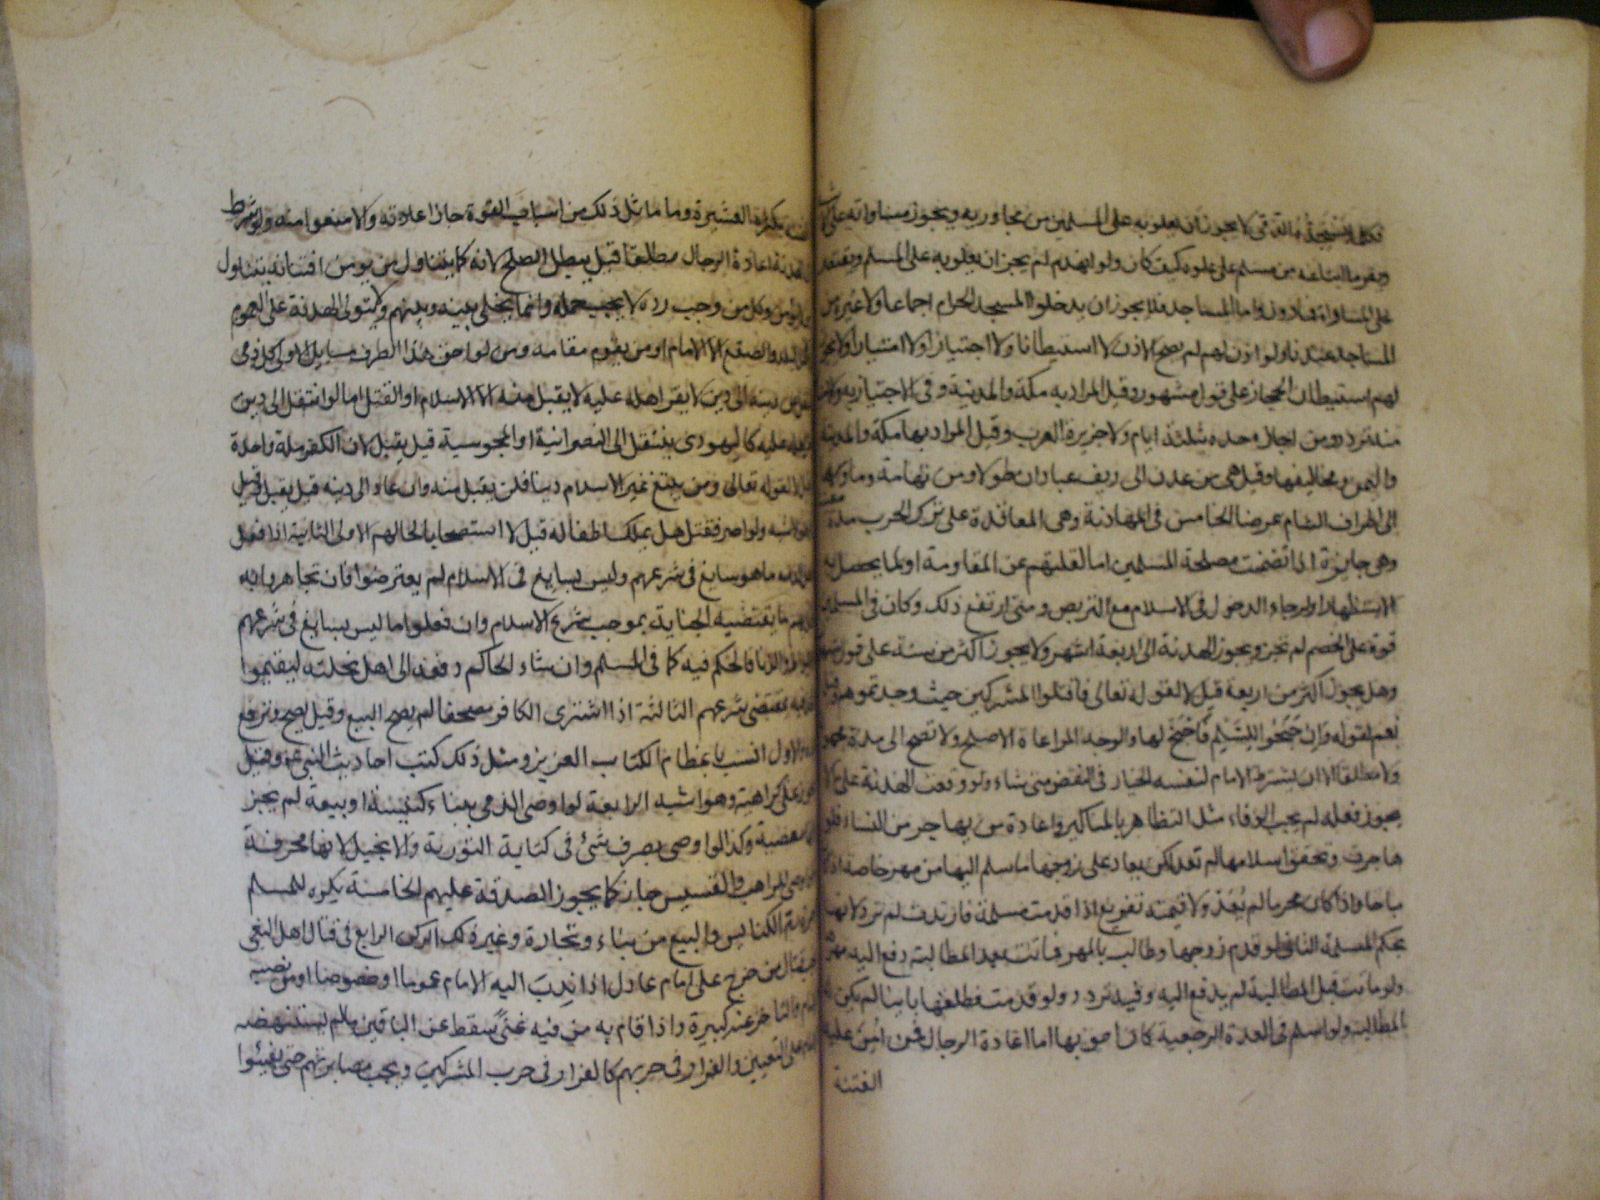 فكل ما يستجده الذمي لا يجوز ان يعلو به على المسلمين من مجاوريه ويجوز مساواته على
ويقر ما ابتاعه من مسلم على علوه كيف كان ولو انهدم لم يجز ان يعلو به على المسلم ويقتصر
على المساواة فما دون واما المساجد فلا يجوز ان يدخلوا المسجد الحرام اجماعا ولا غيره من
المساجد عندنا ولو اذن لهم لم يصح الاذن لا استيطانا ولا اجتيازا ولا امتيارا ولا يجوز
لهم استيطان الحجاز على قول مشهور وقيل المراد به مكة والمدينة وفي الاجتياز به
منه تردد ومن اجازه حده ثلثة ايام ولا جزيرة العرب وقيل المراد بها مكة والمدينة
واليمن ومخاليفها وقيل هي من عدن الى ريف عبادان طولا ومن تهامة وما والاها
الى اطراف الشام عرضا الخامس في المهادنة وهي المعاقدة على ترك الحرب مدة
وهي جايزة اذا تضمنت مصلحة للمسلمين اما لقلتهم عن المقاومة او لما يحصل به
الاستظهار او لرجاء الدخول في الاسلام مع التربص ومتى ارتفع ذلك وكان في المسلمين
قوة على الخصم لم تجز ويجوز الهدنة الى اربعة اشهر ولا يجوز اكثر من سنة على قول
وهل يجوز اكثر من اربعة قيل لا لقوله تعالى فاقتلوا المشركين حيث وجدتموهم وقيل
نعم لقوله وان جنحوا للسلم فاجنح لها والوجه المراعاة الاصلح ولا تصح الى مدة
ولا مطلقا الا ان يشترط الامام لنفسه الخيار في النقض متى شاء ولو وقعت الهدنة على ما لا
يجوز فعله لم يجب الوفاء مثل التظاهر بالمناكير واعادة من يهاجر من النساء فلو
هاجرت وتحقق اسلامها لم تعد لكن يعاد على زوجها ما سلم اليها من مهر خاصة اذا كان
مباحا واذا كان محرما لم يعد ولا قيمته تفريع اذا قدمت مسلمة فارتدت لم ترد لانها
بحكم المسلمة الثاني لو قدم زوجها وطالب بالمهر فماتت بعد المطالبة دفع اليه مهرها
ولو ماتت قبل المطالبة لم يدفع اليه وفيه تردد ولو قدمت فطلقها باينا لم يكن له
المطالبة ولو اسلم في العدة الرجعية كان احق بها اما اعادة الرجال فمن امن عليه
الفتنة
بكثرة العشيرة وما ماثل ذلك من اسباب القوة جاز اعادته والا منعوا منه ولو شرط
في الهدنة اعادة الرجال مطلقا قيل يبطل الصلح لانه كما يتناول من يؤمن افتتانه يتناول
من لا يؤمن وكل من وجب رده لا يجب حمله وانما يخلى بينه وبينهم ولا يتولى الهدنة على العموم
ولا لاهل البلد والصقع الا الامام او من يقوم مقامه ومن لواحق هذا الطرف مسايل الاولى كل ذمي
انتقل عن دينه الى دين لا يقر اهله عليه لا يقبل منه الا الاسلام او القتل اما لو انتقل الى دين
يقر اهله عليه كاليهودي ينتقل الى النصرانية او المجوسية قيل يقبل لان الكفر ملة واحدة
وقيل لا لقوله تعالى ومن يبتغ غير الاسلام دينا فلن يقبل منه وان عاد الى دينه قيل يقبل وقيل
لا ولو اصر فقتل هل يملك اطفاله قيل لا استصحابا لحالهم الاولى الثانية اذا فعل
اهل الذمة ما هو سايغ في شرعهم وليس بسايغ في الاسلام لم يعترضوا فان تجاهروا به
عمل بهم ما يقتضيه الجناية بموجب شرع الاسلام وان فعلوا ما ليس بسايغ في شرعهم
كاللواط والزنا فالحكم فيه كما في المسلم وان شاء الحاكم دفعه الى اهل نحلته ليقيموا
الحد فيه بمقتضى شرعهم الثالثة اذا اشترى الكافر مصحفا لم يصح البيع وقيل يصح وترفع
يده والاول انسب باعظام الكتاب العزيز ومثل ذلك كتب احاديث النبي ص وقيل
يجوز على كراهية وهو اشبه الرابعة لو اوصى الذمي ببناء كنيسة او بيعة لم يجز
لانها معصية وكذا لو اوصى بصرف شئ في كتابة التورية والانجيل لانها محرفة
ولو اوصى للراهب والقسيس جاز كما يجوز الصدقة عليهم الخامسة يكره للمسلم
مرمة الكنايس والبيع من بناء ونجارة وغير ذلك الركن الرابع في قتال اهل البغي
يجب قتال من خرج على امام عادل اذا ندب اليه الامام عموما او خصوصا او من نصبه
الامام والتاخر عنه كبيرة واذا قام به من فيه غنى سقط عن الباقين ما لم يستنهضه
الامام على التعيين والفرار في حربهم كالفرار في حرب المشركين ويجب مصابرتهم حتى يفيئوا